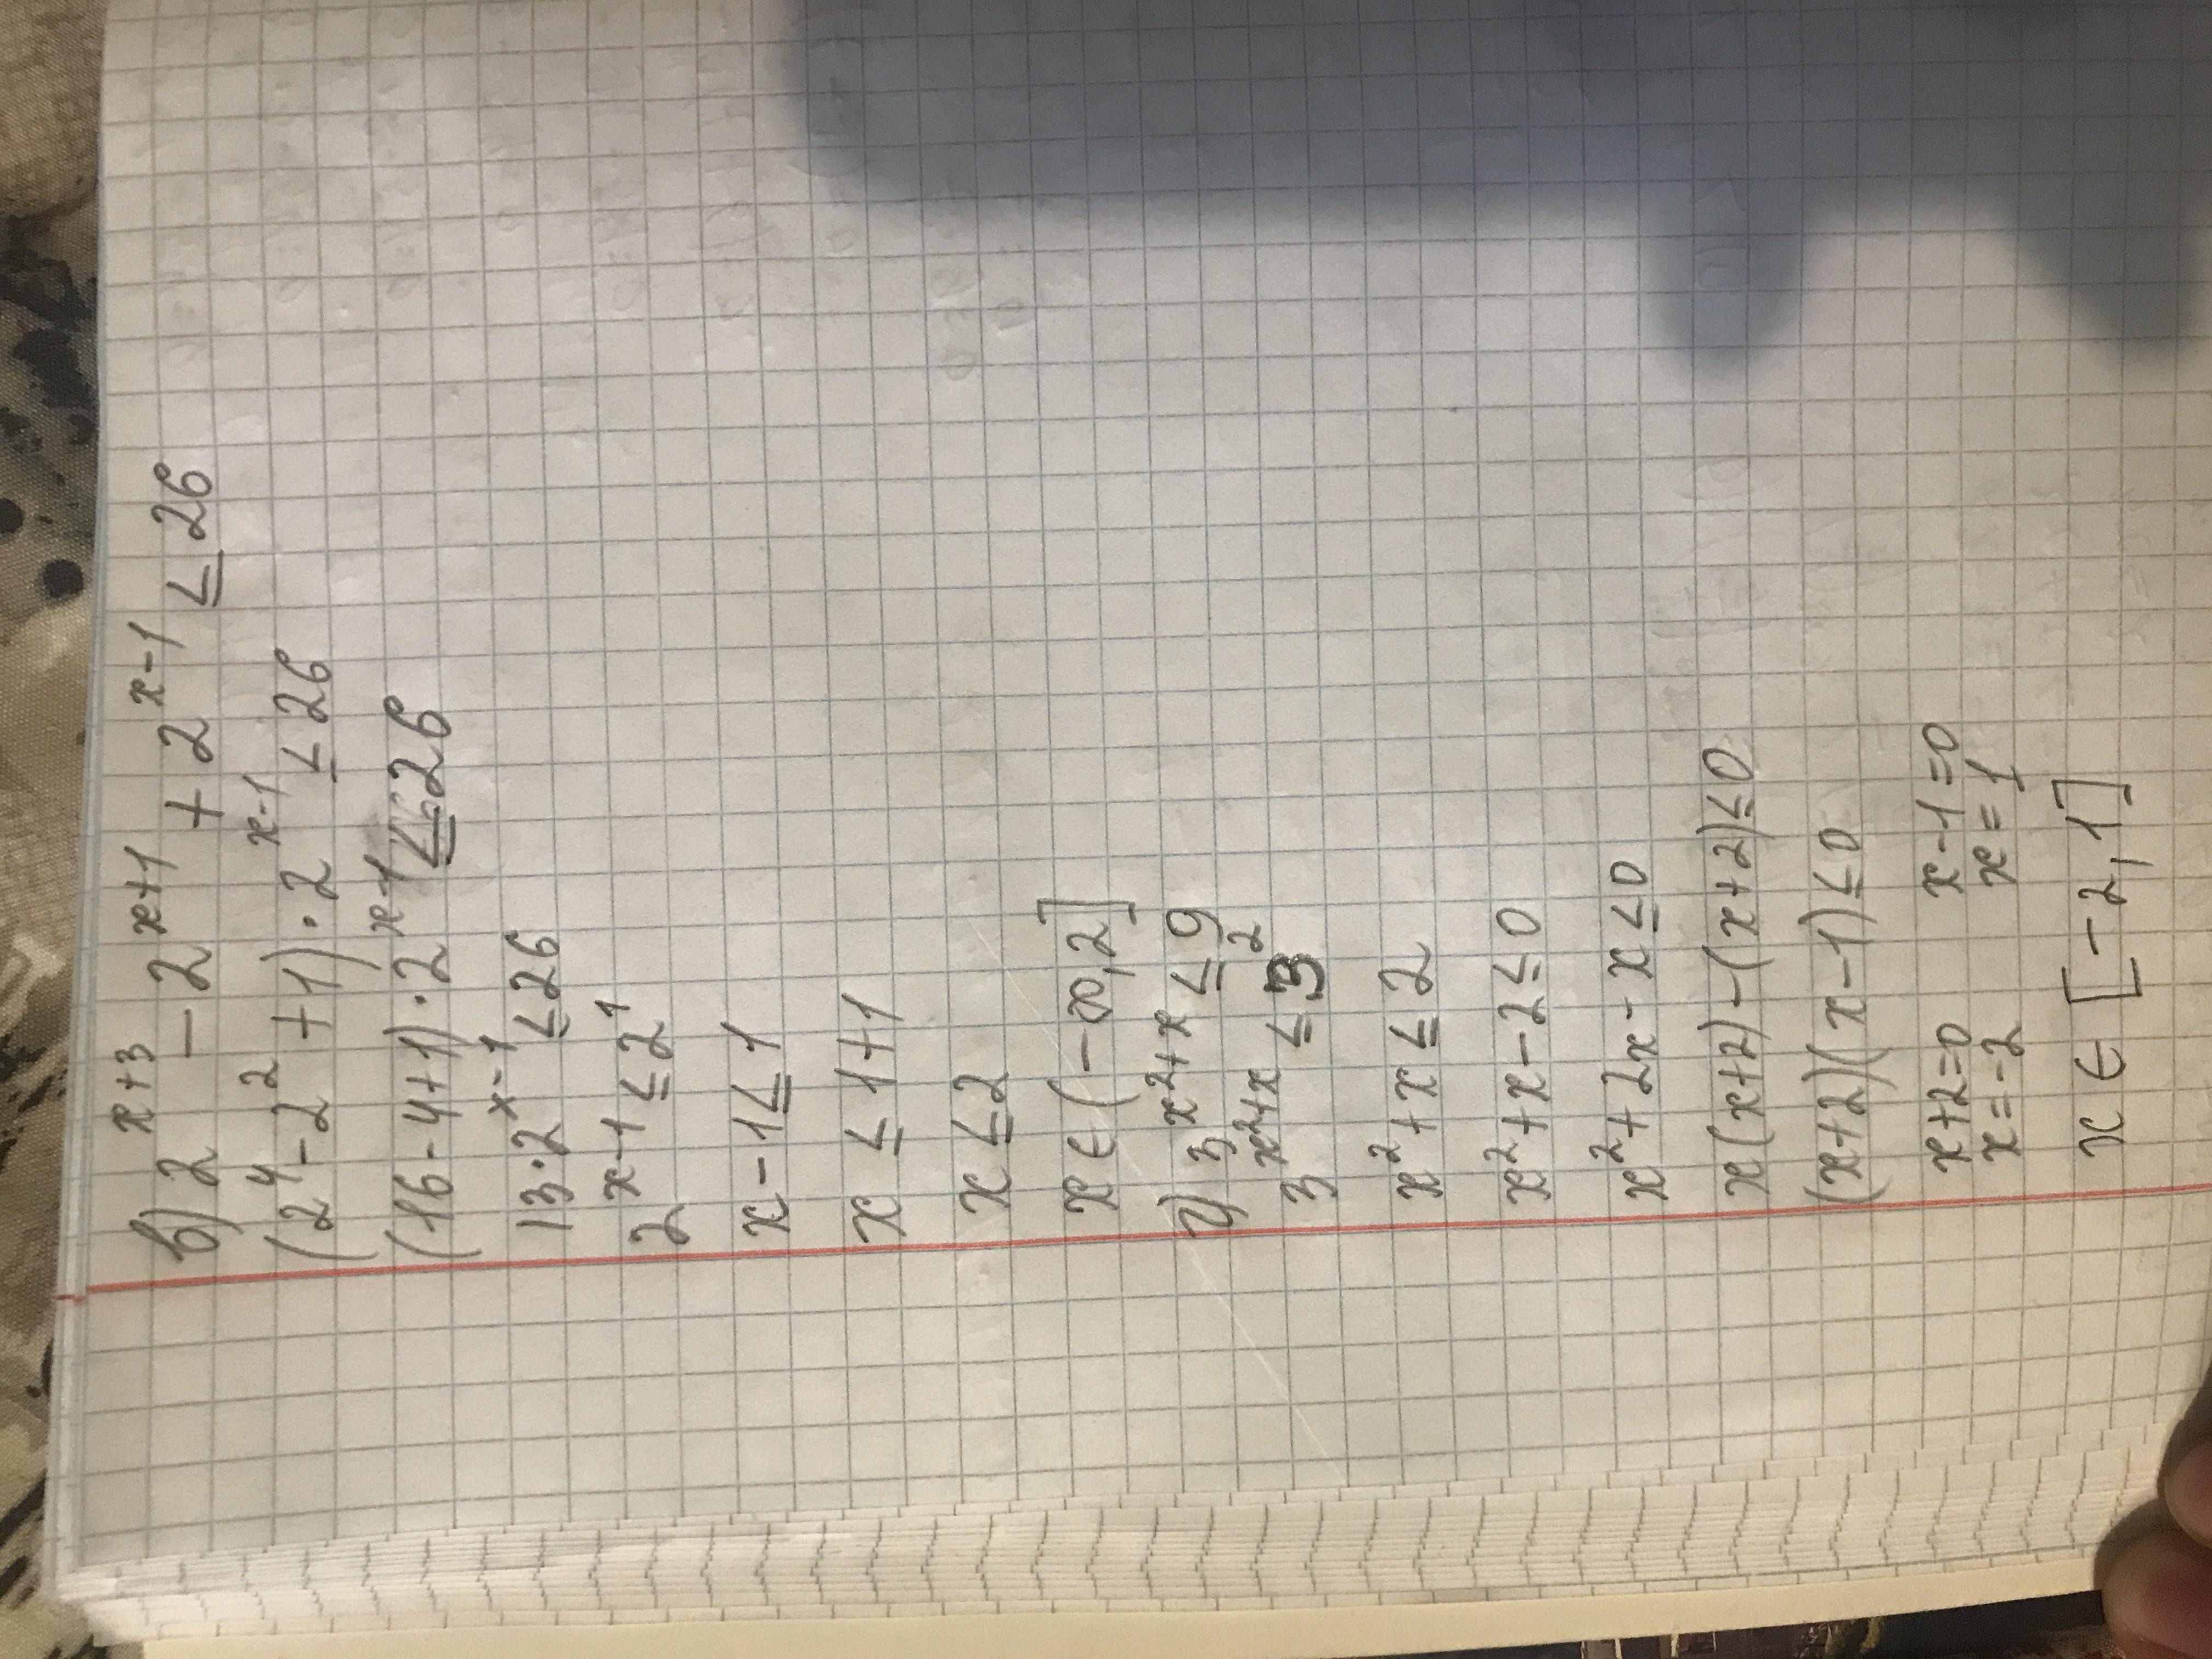 в) 2^{x+3} - 2^{x+1} + 2^{x-1} ≤ 26
(2^4 - 2^2 + 1) · 2^{x-1} ≤ 26
(16 - 4 + 1) · 2^{x-1} ≤ 26
13 · 2^{x-1} ≤ 26
2^{x-1} ≤ 2^1
x - 1 ≤ 1
x ≤ 1 + 1
x ≤ 2
x ∈ (-∞, 2]
г) 3^{x^2+x} ≤ 9
3^{x^2+x} ≤ 3^2
x^2 + x ≤ 2
x^2 + x - 2 ≤ 0
x^2 + 2x - x ≤ 0
x(x+2) - (x+2) ≤ 0
(x+2)(x-1) ≤ 0
x+2=0 x-1=0
x=-2 x=1
x ∈ [-2, 1]